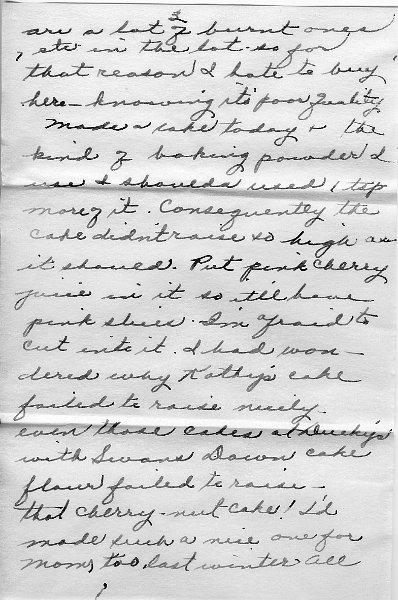 are a lot of burnt ones
, etc in the lot. so for
that reason I hate to buy
here - knowing it's poor quality
Made a cake today + the
kind of baking powder I
use I shoulda used 1 tsp
more of it. Consequently the
cake didn't raise so high as
it should. Put pink cherry
juice in it so it'll have
pink slices. I'm afraid to
cut into it. I had won-
dered why Kathy's cake
failed to raise nicely.
even those cakes at Ducky's
with Swans Down cake
flour failed to raise -
that cherry-nut cake! I'd
made such a nice one for
Mom, too, last winter all